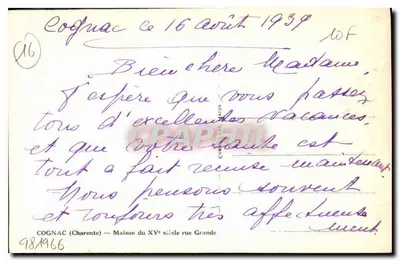 Cognac ce 16 août 1939
10F
16
Bien chère Madame,
J'espère que vous passez
tous d'excellentes vacances,
et que votre santé est
tout à fait remise maintenant.
Nous pensons souvent
et toujours très affectueuse
ment.
COGNAC (Charente) — Maison du XVe siècle rue Grande
981966